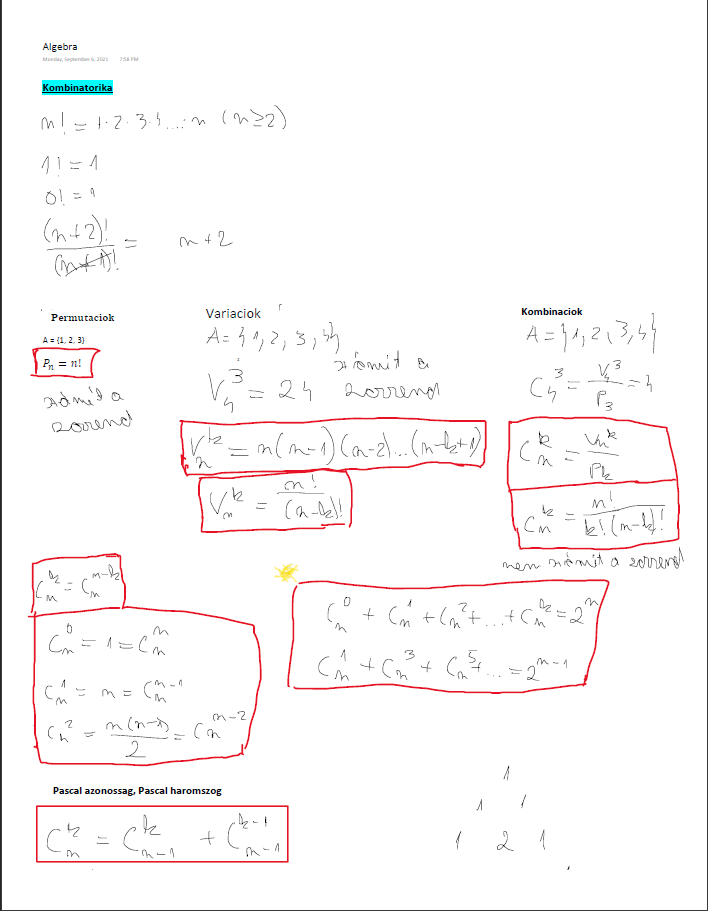 Algebra
Monday, September 6, 2021 7:58 PM
Kombinatorika
n! = 1·2·3·4....·n (n≥2)
1! = 1
0! = 1
(n+2)!/(n+1)! = n+2
Permutaciok
A = {1, 2, 3}
P_n = n!
számít a
sorrend
Variaciok
A = {1, 2, 3, 4}
V_4^3 = 24
számít a
sorrend
V_n^k = n(n-1)(n-2)...(n-k+1)
V_n^k = n!/(n-k)!
Kombinaciok
A = {1, 2, 3, 4}
C_4^3 = V_4^3/P_3 = 4
C_n^k = V_n^k/P_k
C_n^k = n!/k!(n-k)!
nem számít a sorrend
C_n^k = C_n^{n-k}
C_n^0 = 1 = C_n^n
C_n^1 = n = C_n^{n-1}
C_n^2 = n(n-1)/2 = C_n^{n-2}
C_n^0 + C_n^1 + C_n^2 + ... + C_n^k = 2^n
C_n^1 + C_n^3 + C_n^5 + ... = 2^{n-1}
Pascal azonossag, Pascal haromszog
C_n^k = C_{n-1}^k + C_{n-1}^{k-1}
1
1 1
1 2 1